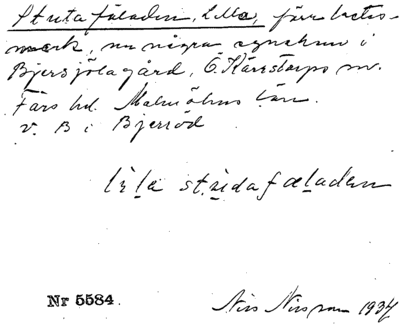 Strutafäladen, Lilla, förr betes-
mark, nu några synehus i
Bjersjölagård, Ö. Kärrstorps sn.
Färs hd. Malmöhus län.
v. B i Bjerröd
lila strudafæladen
Nr 5584. Nils Nilsson 1934